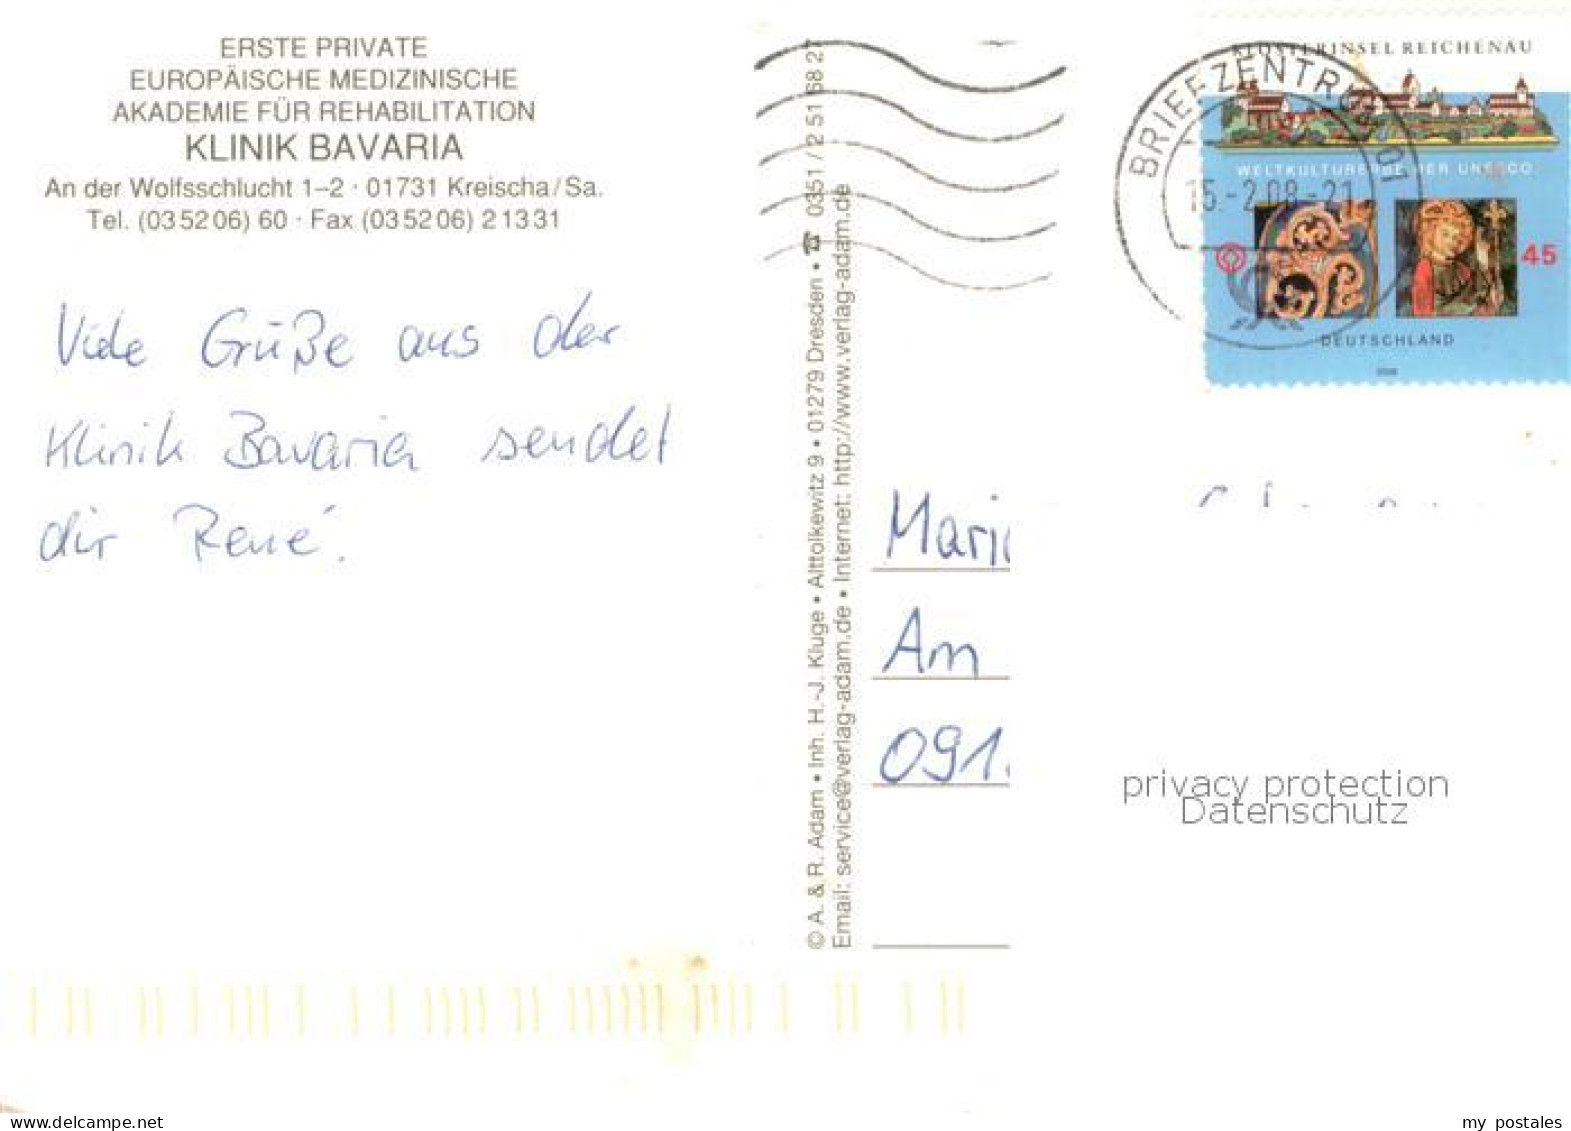 ERSTE PRIVATE
EUROPÄISCHE MEDIZINISCHE
AKADEMIE FÜR REHABILITATION
KLINIK BAVARIA
An der Wolfsschlucht 1–2 · 01731 Kreischa/Sa.
Tel. (03 52 06) 60 · Fax (03 52 06) 2 13 31
Viele Grüße aus der
Klinik Bavaria sendet
dir René.
© A. & R. Adam • Inh. H.-J. Kluge • Alttolkewitz 9 • 01279 Dresden • ☎ 0351 / 2 51 68 27
Email: service@verlag-adam.de • Internet: http://www.verlag-adam.de
KLOSTERINSEL REICHENAU
WELTKULTURERBE DER UNESCO
45
DEUTSCHLAND
BRIEFZENTRUM 01
15.-2.08.-21
Am
091
privacy protection
Datenschutz
akpool.de
my_postales